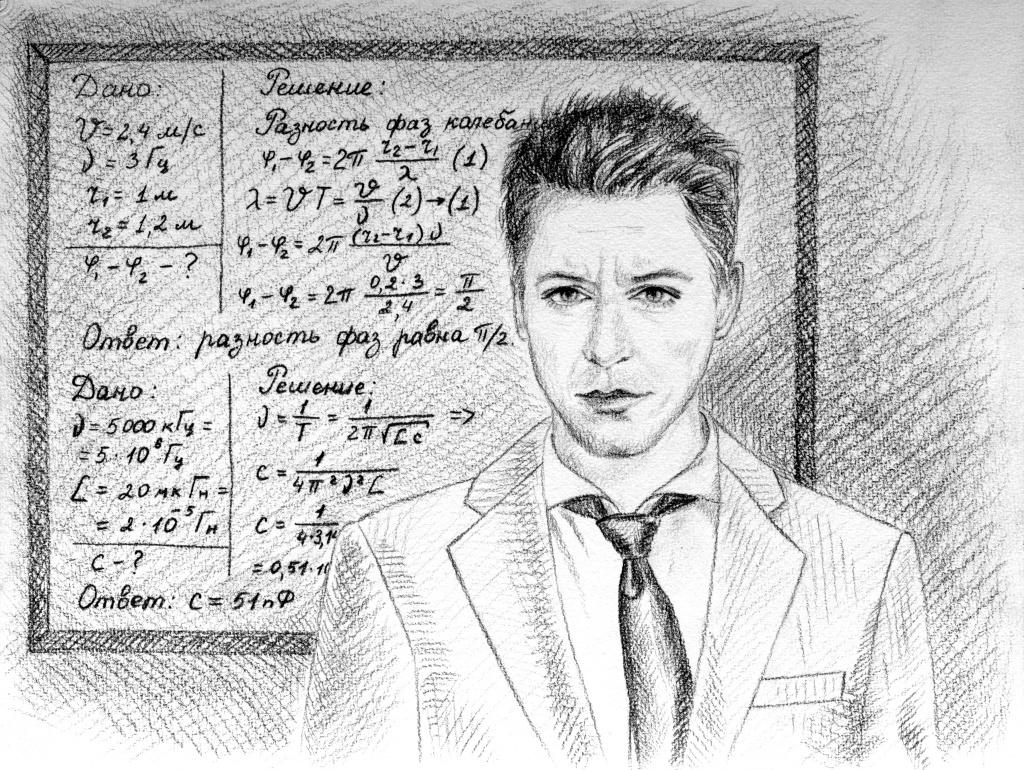 Дано:
υ = 2,4 м/с
ν = 3 Гц
r₁ = 1 м
r₂ = 1,2 м
φ₁ - φ₂ - ?
Решение:
Разность фаз
φ₁ - φ₂ = 2π (r₂ - r₁)/λ (1)
λ = υT = υ/ν (2) → (1)
φ₁ - φ₂ = 2π (r₂ - r₁)ν/υ
φ₁ - φ₂ = 2π 0,2·3/2,4 = π/2
Ответ: разность фаз равна π/2.
Дано:
ν = 5000 кГц =
= 5·10⁶ Гц
L = 20 мкГн =
= 2·10⁻⁵ Гн
c - ?
Решение:
ν = 1/T = 1/2π√Lc =>
c = 1/4π²ν²L
c = 1/4·3,14
= 0,51·10
Ответ: c = 51 пФ